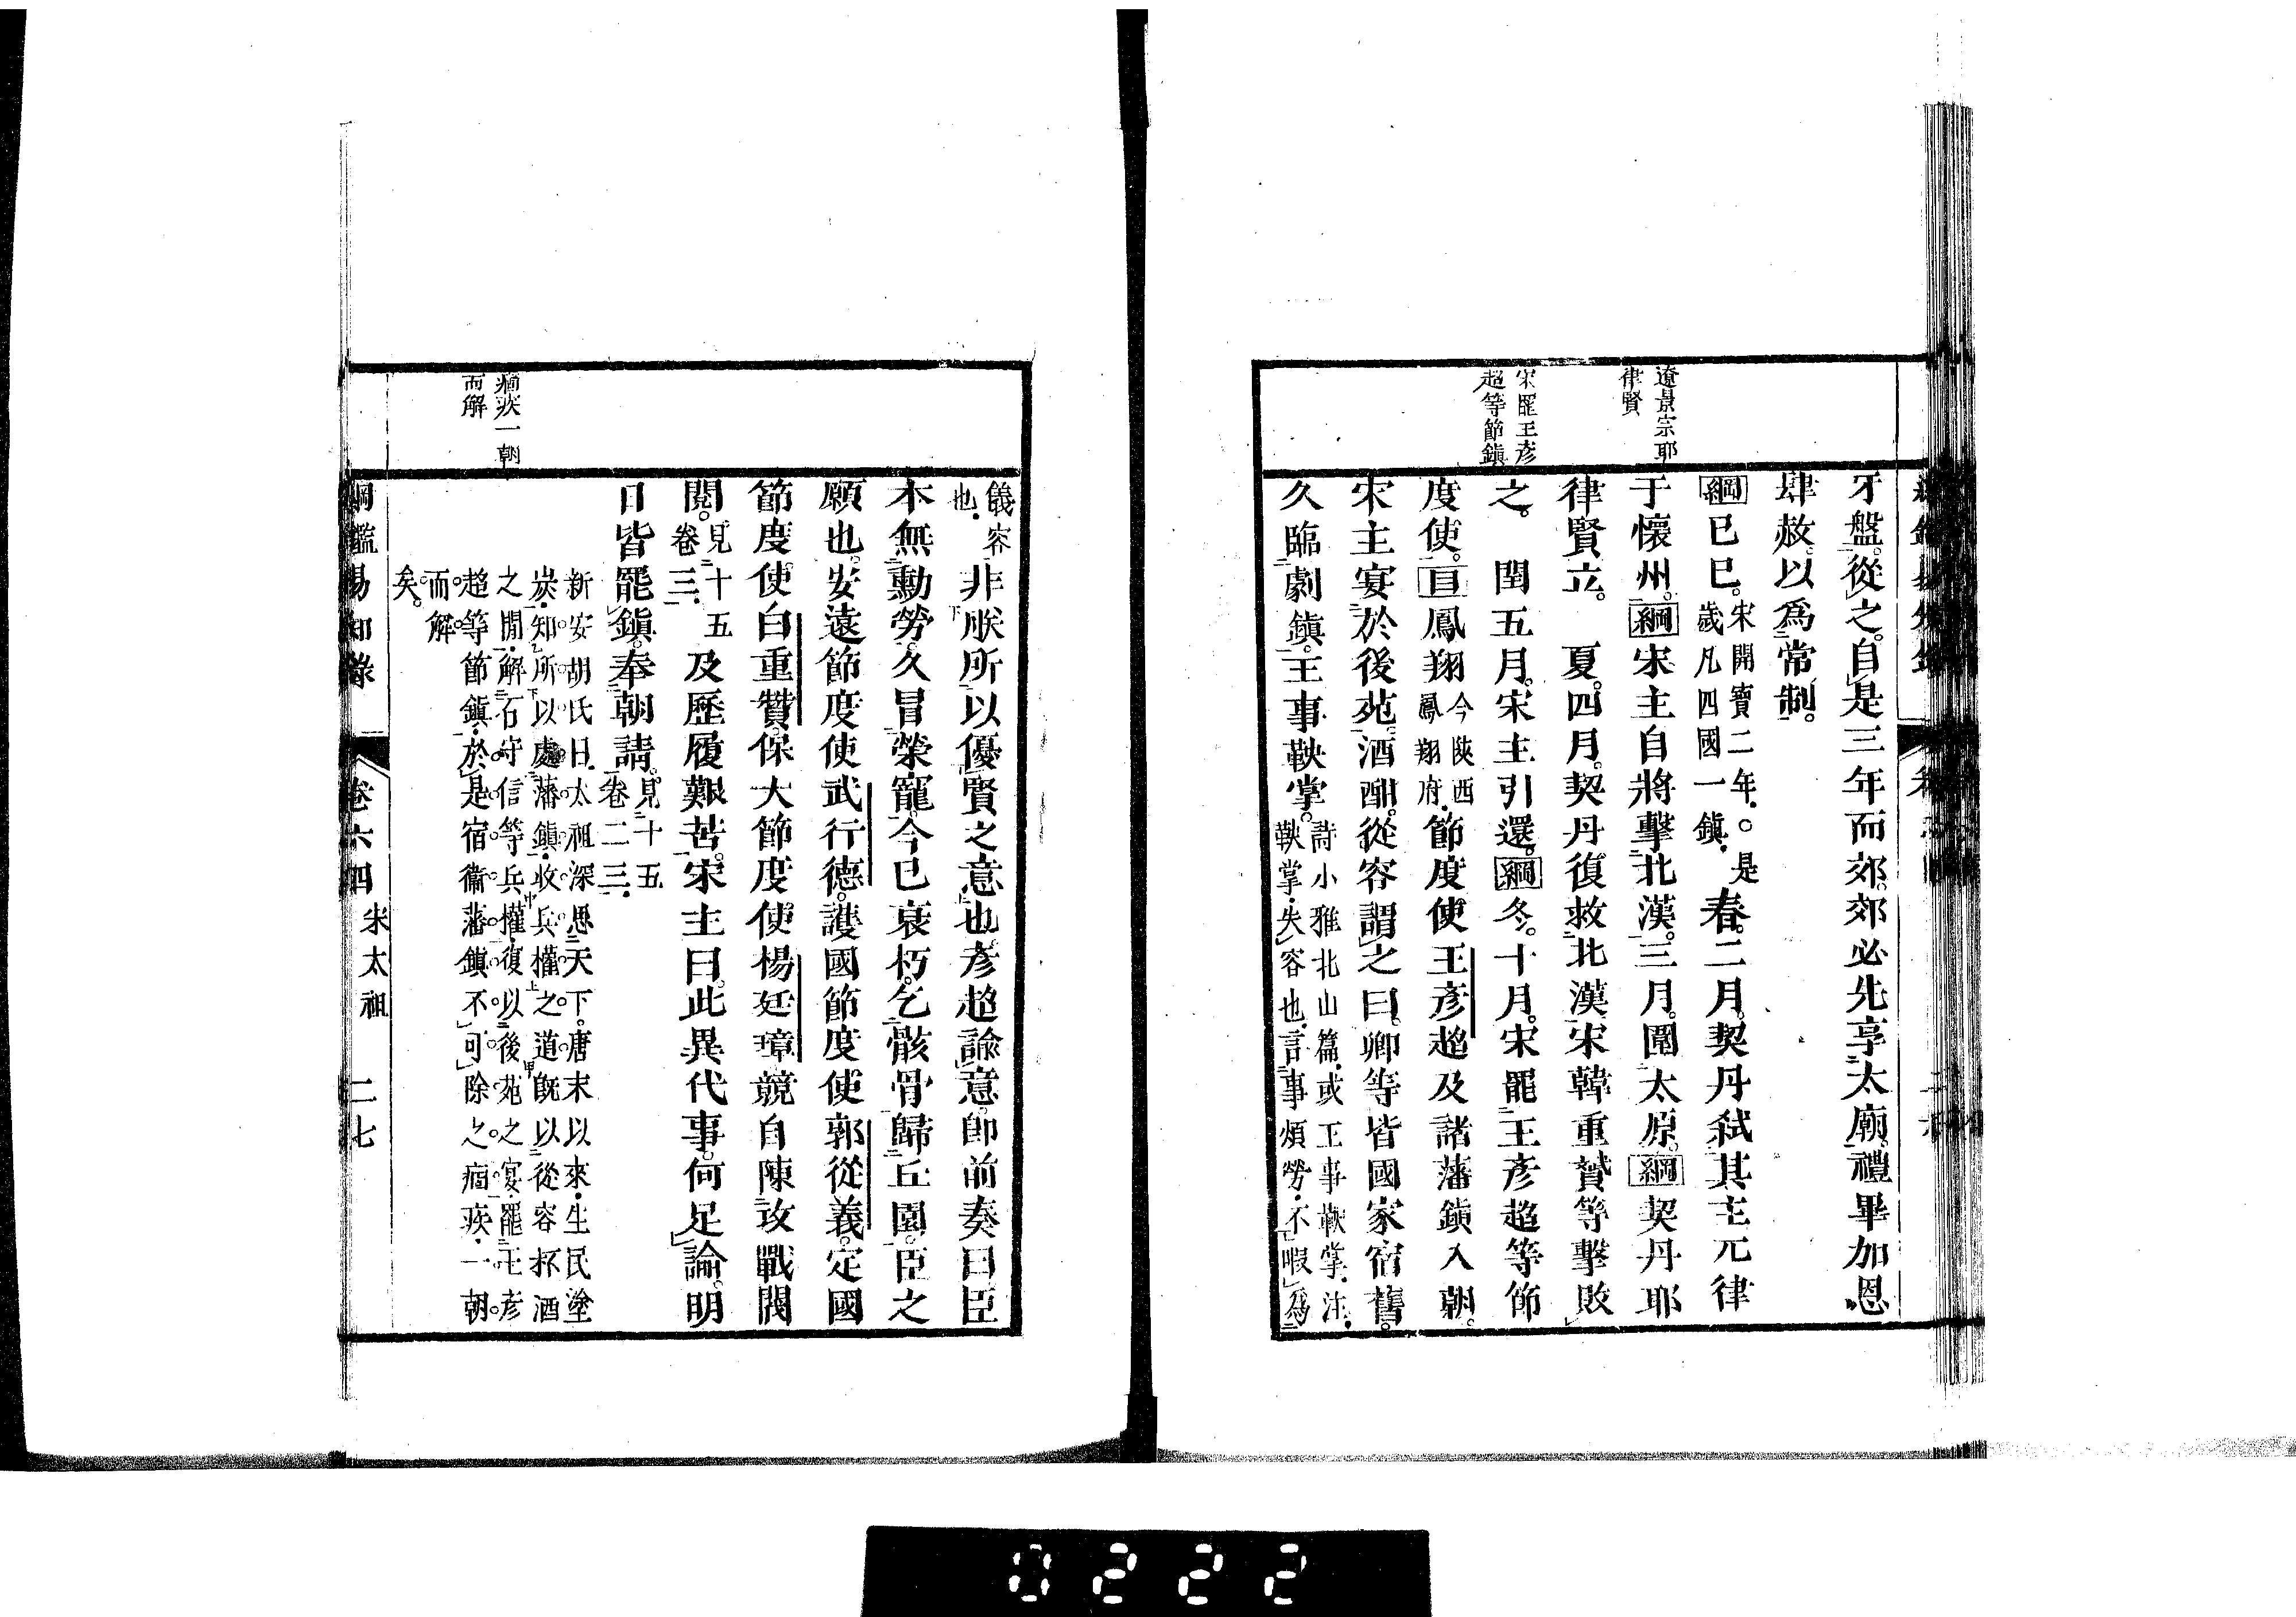 遼景宗耶
律賢
宋罷王彥
超等節鎮
牙盤從之。自是三年而郊。郊必先享太廟。禮畢加恩
肆赦。以爲常制。
綱己巳。宋開寶二年。○是歲凡四國一鎮。春。二月。契丹弒其主兀律
于懷州。綱宋主自將擊北漢。三月。圍太原。綱契丹耶
律賢立。夏。四月。契丹復救北漢。宋韓重贇等擊敗
之。閏五月。宋主引還。綱冬。十月。宋罷王彥超等節
度使。目鳳翔今陝西鳳翔府。節度使王彥超及諸藩鎮入朝。
宋主宴於後苑。酒酣。從容謂之曰。卿等皆國家宿舊。
久臨劇鎮。王事鞅掌。詩小雅北山篇。或王事鞅掌。注。鞅掌。失容也。言事煩勞。不暇爲
儀容也。非朕所以優賢之意也。彥超諭意。卽前奏曰。臣
本無勳勞。久冒榮寵。今已衰朽。乞骸骨歸丘園。臣之
願也。安遠節度使武行德。護國節度使郭從義。定國
節度使白重贊。保大節度使楊廷璋。競自陳攻戰閥
閱。見十五卷三。及歷履艱苦。宋主曰。此異代事。何足論。明
日皆罷鎮。奉朝請。見十五卷二三。
新安胡氏曰。太祖深思天下。唐末以來。生民塗
炭。知所以處藩鎮。收兵權之道。旣以從容杯酒
之閒。解石守信等兵權。復以後苑之宴。罷王彥
超等節鎮。於是宿衞藩鎮不可除之痼疾。一朝
而解
矣。
痼疾一朝
而解
綱鑑易知錄 卷六四 宋太祖 二七
0222